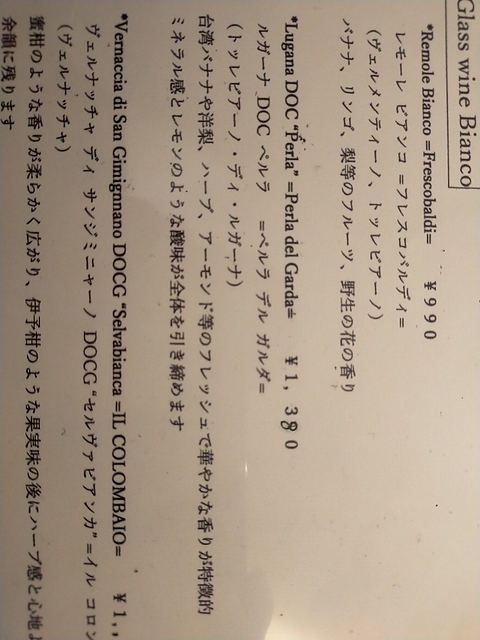 Glass wine Bianco
*Remole Bianco =Frescobaldi= ￥990
レモーレ ビアンコ =フレスコバルディ=
(ヴェルメンティーノ、トッレビアーノ)
バナナ、リンゴ、梨等のフルーツ、野生の花の香り
*Lugana DOC "Perla" =Perla del Garda= ￥1,380
ルガーナ DOC ペルラ =ペルラ デル ガルダ=
(トッレビアーノ・ディ・ルガーナ)
台湾バナナや洋梨、ハーブ、アーモンド等のフレッシュで華やかな香りが特徴的
ミネラル感とレモンのような酸味が全体を引き締めます
*Vernaccia di San Gimignnano DOCG "Selvabianca =IL COLOMBAIO= ￥1,
ヴェルナッチャ ディ サンジミニャーノ DOCG "セルヴァビアンカ" =イル コロン
(ヴェルナッチャ)
蜜柑のような香りが柔らかく広がり、伊予柑のような果実味の後にハーブ感と心地よ
余韻に残ります